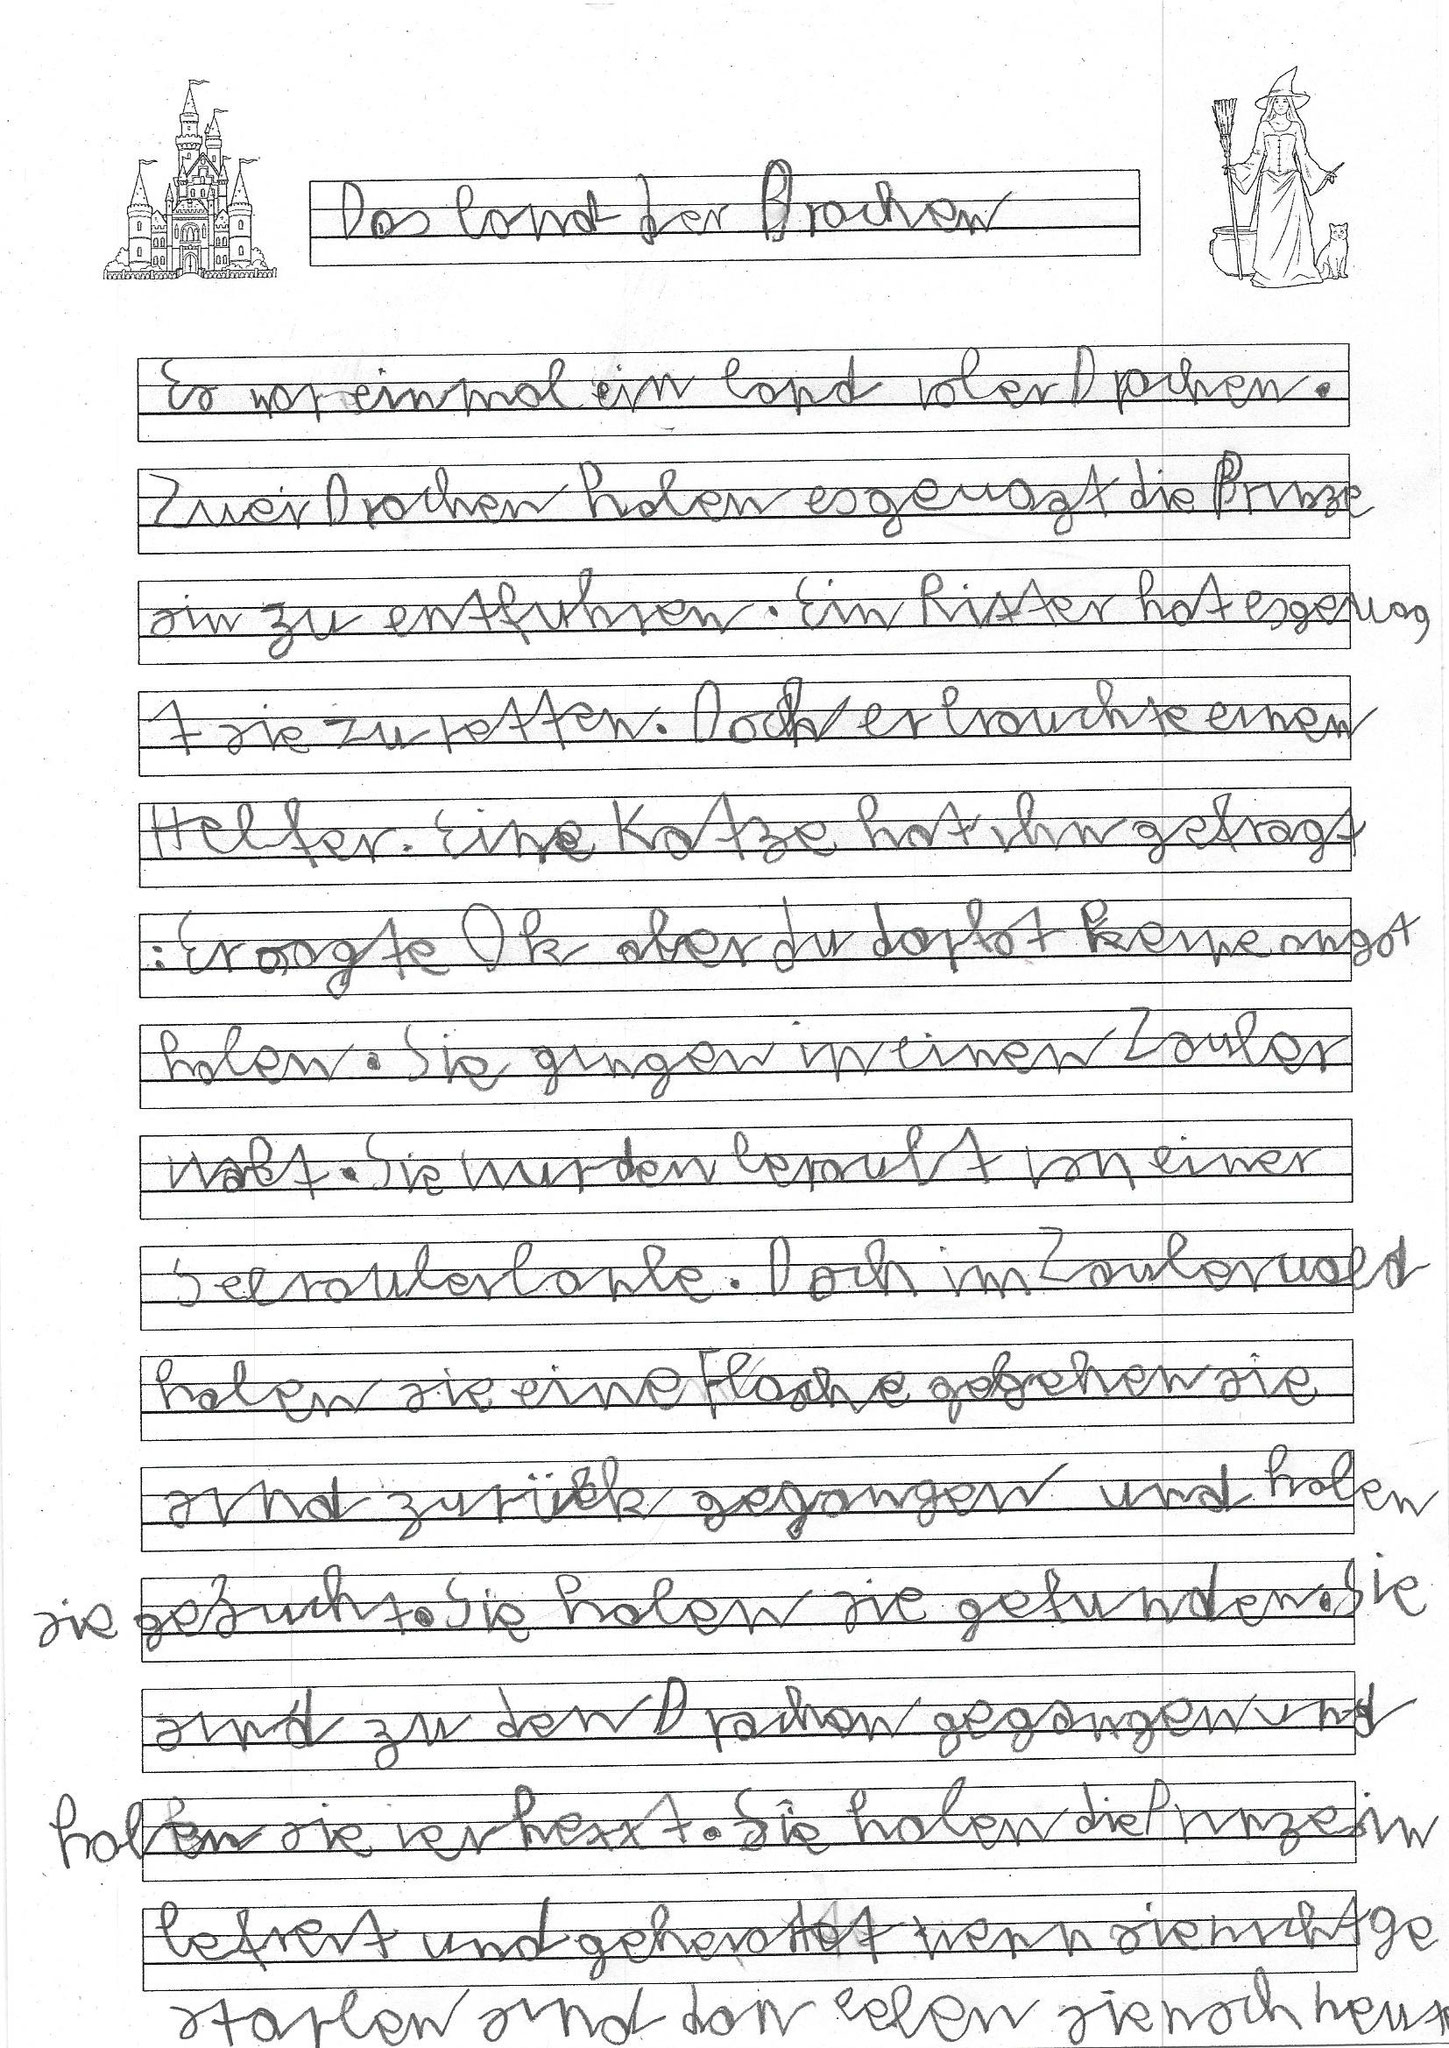 Das Land der Drachen
Es war einmal ein land voler Drachen.
Zwei Drachen haben es gewagt die Prinze
sin zu entfuhren. Ein Ritter hat es gewag
t sie zu retten. Doch er brauchte einen
Helfer. Eine Katze hat ihn gefragt
: Er sagte Ok aber du darfst keine angst
haben. Sie gingen in einen Zauber
walt. Sie wurden beraubt von einer
Seeräuberbande. Doch im Zauberwald
haben sie eine Flasche gesehen sie
sind zurück gegangen und haben
sie gesucht. Sie haben sie gefunden. Sie
sind zu den Drachen gegangen und
haben sie verhext. Sie haben die Prinzesin
befreit und geheratet wenn sie nicht ge
starben sind dan leben sie noch heute